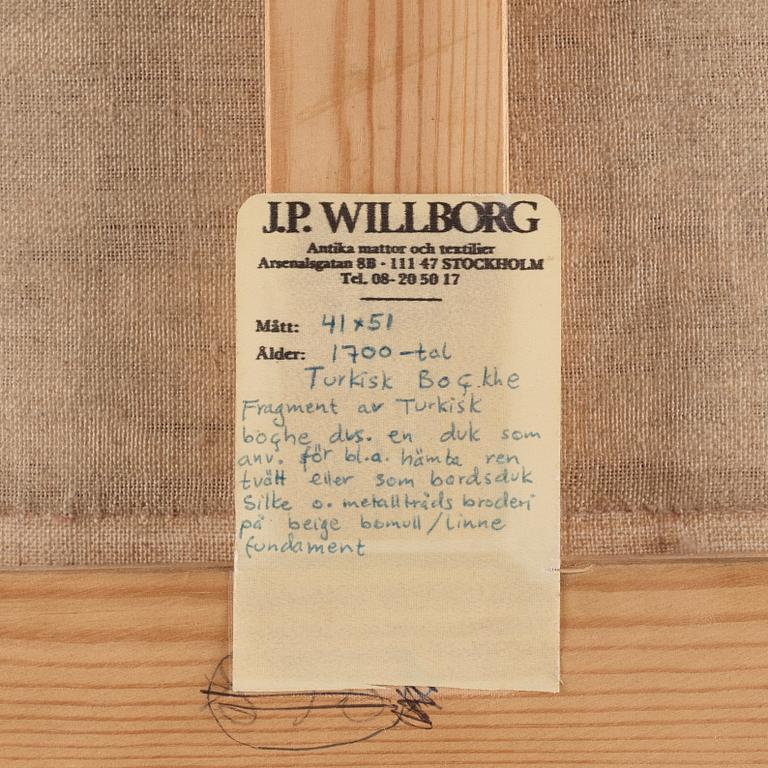 J.P. WILLBORG
Antika mattor och textilier
Arsenalsgatan 8B - 111 47 STOCKHOLM
Tel. 08- 20 50 17
Mått: 41x51
Ålder: 1700-tal
Turkisk Boç.khe
Fragment av Turkisk
boçhe dvs. en duk som
anv. för bl.a. hämta ren
tvätt eller som bordsduk
Silke o. metalltråds broderi
på beige bomull/linne
fundament